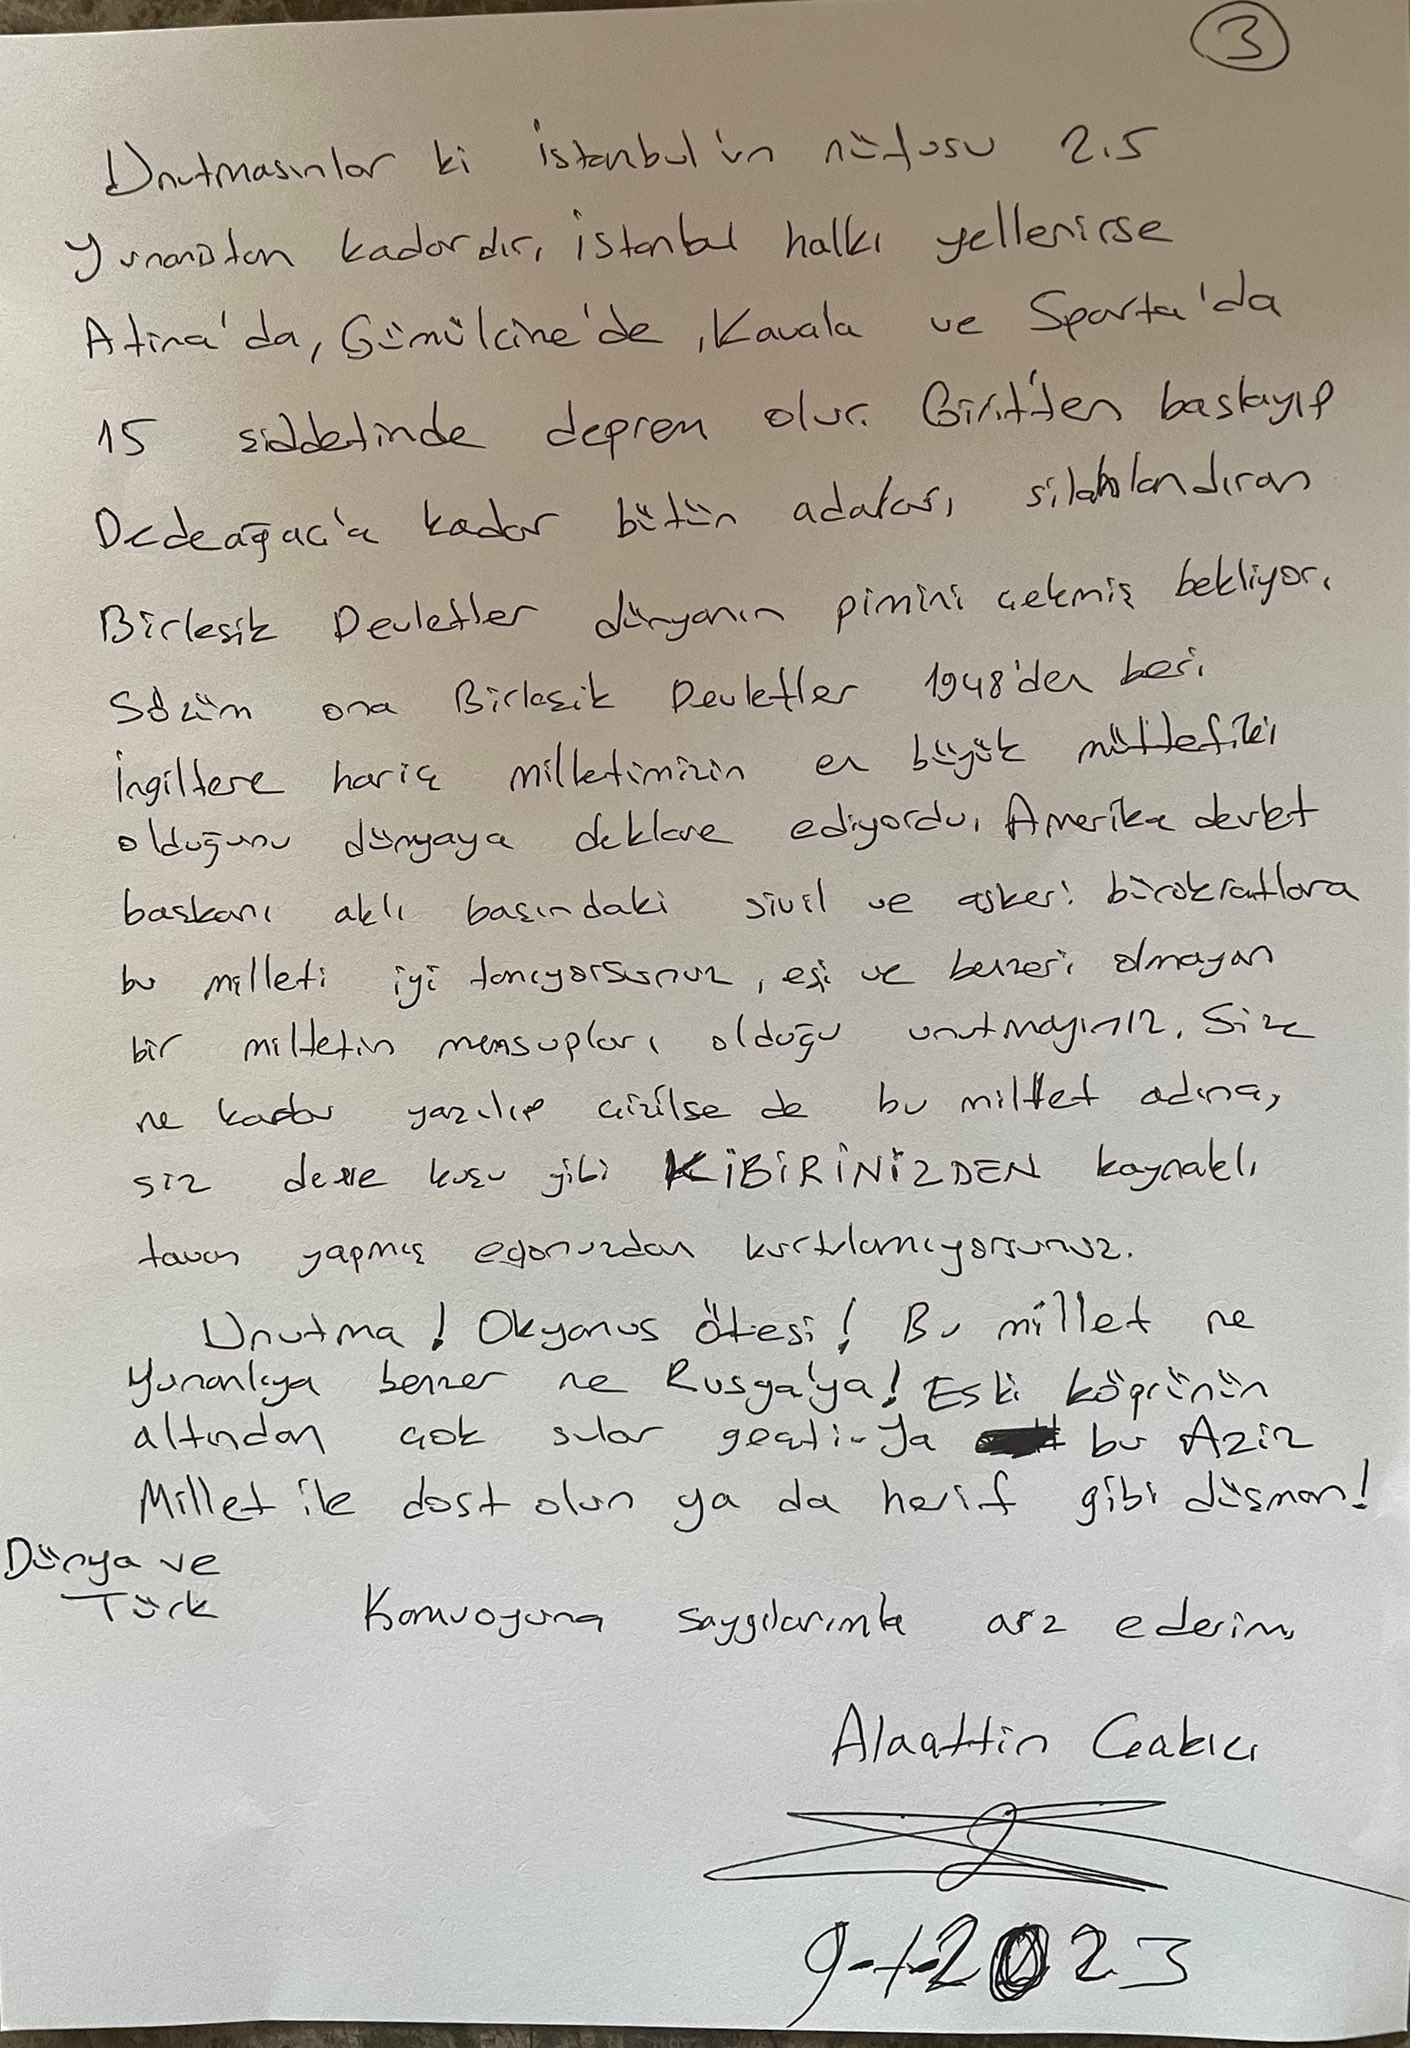 3
Unutmasınlar ki İstanbul'un nüfusu 2.5
Yunanistan kadardır, İstanbul halkı yellenirse
Atina'da, Gümülcine'de, Kavala ve Sparta'da
15 şiddetinde deprem olur. Girit'ten başlayıp
Dedeağaç'a kadar bütün adaları, silahlandıran
Birleşik Devletler dünyanın pimini çekmiş bekliyor.
Sözüm ona Birleşik Devletler 1948'den beri
İngiltere hariç milletimizin en büyük müttefiki
olduğunu dünyaya deklare ediyordu. Amerika devlet
başkanı aklı başındaki sivil ve askeri bürokratlara
bu milleti iyi tanıyorsunuz, eşi ve benzeri olmayan
bir milletin mensupları olduğu unutmayınız. Size
ne kadar yazılıp çizilse de bu millet adına,
siz deve kuşu gibi KİBİRİNİZDEN kaynaklı
tavan yapmış egonuzdan kurtulamıyorsunuz.
Unutma! Okyanus Ötesi! Bu millet ne
Yunanlıya benzer ne Rusya'ya! Eski köprünün
altından çok sular geçti-Ya bu Aziz
Millet ile dost olun ya da herif gibi düşman!
Dünya ve
Türk Kamuoyuna saygılarımla arz ederim.
Alaattin Çakıcı
9-1-2023